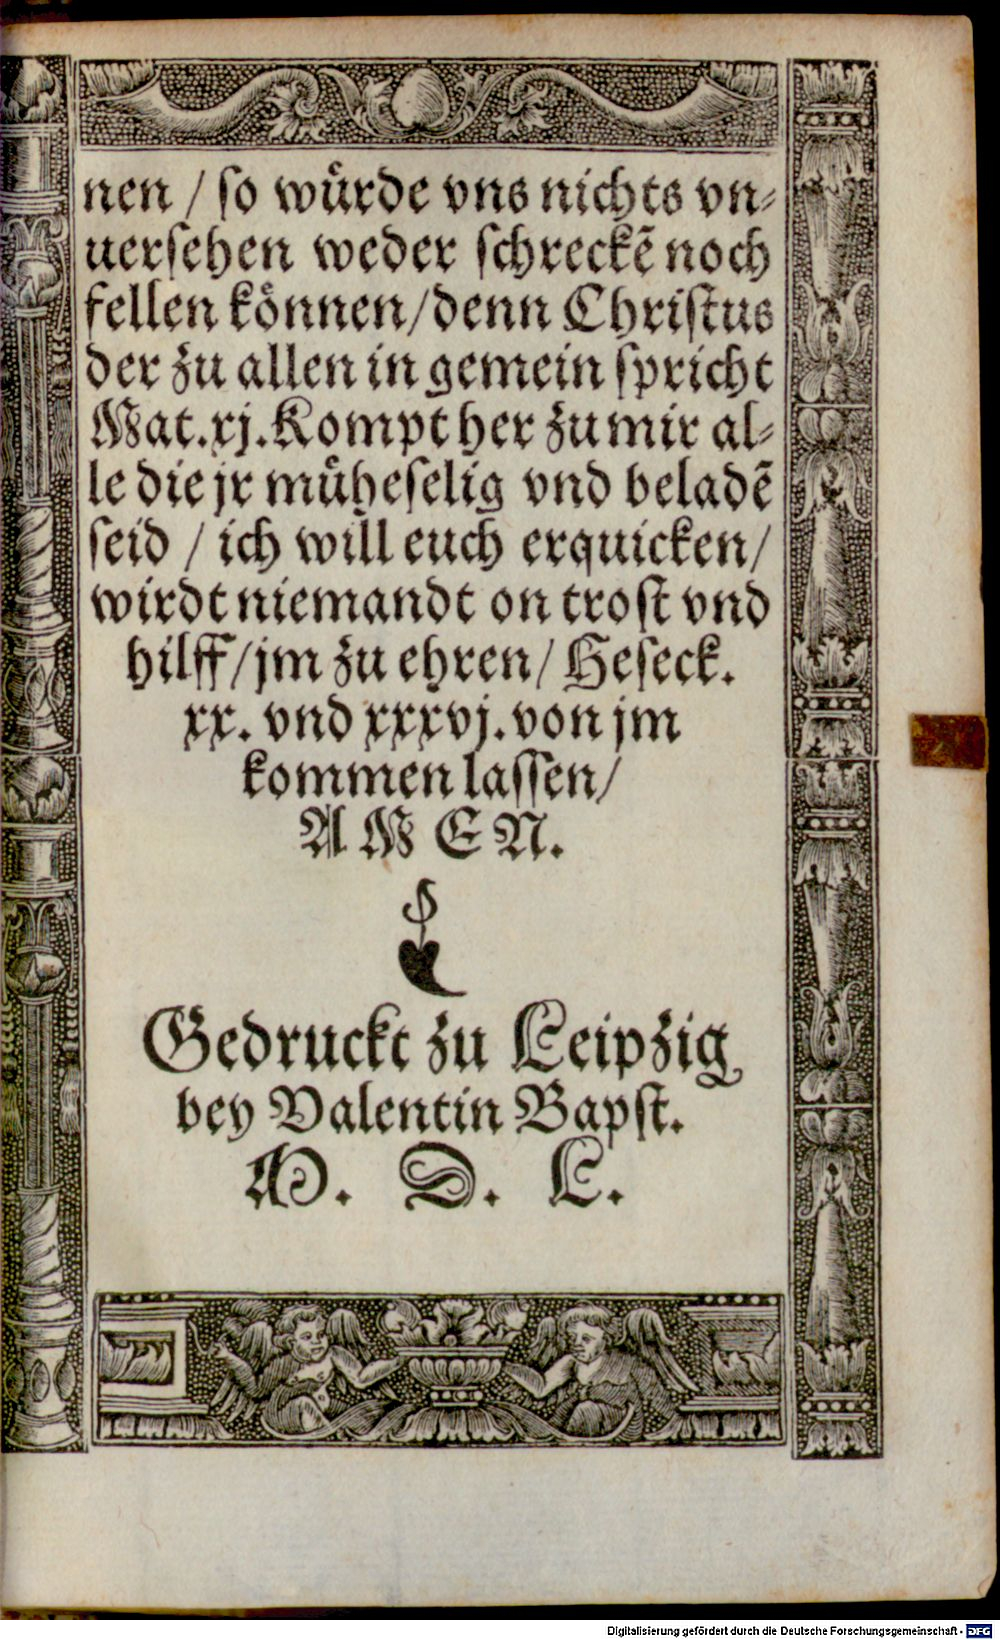 nen / so wuͤrde vns nichts vn⸗
uersehen weder schreckẽ noch
fellen koͤnnen/denn Christus
der zu allen in gemein spricht
Mat.xj.Kompt her zu mir al⸗
le die jr muͤheselig vnd beladẽ
seid / ich will euch erquicken/
wirdt niemandt on trost vnd
hilff/jm zu ehren/ Heseck.
xx. vnd xxxvj. von jm
kommen lassen/
A M E N.
Gedruckt zu Leipzig
bey Valentin Bapst.
M. D. L.
Digitalisierung gefördert durch die Deutsche Forschungsgemeinschaft - DFG